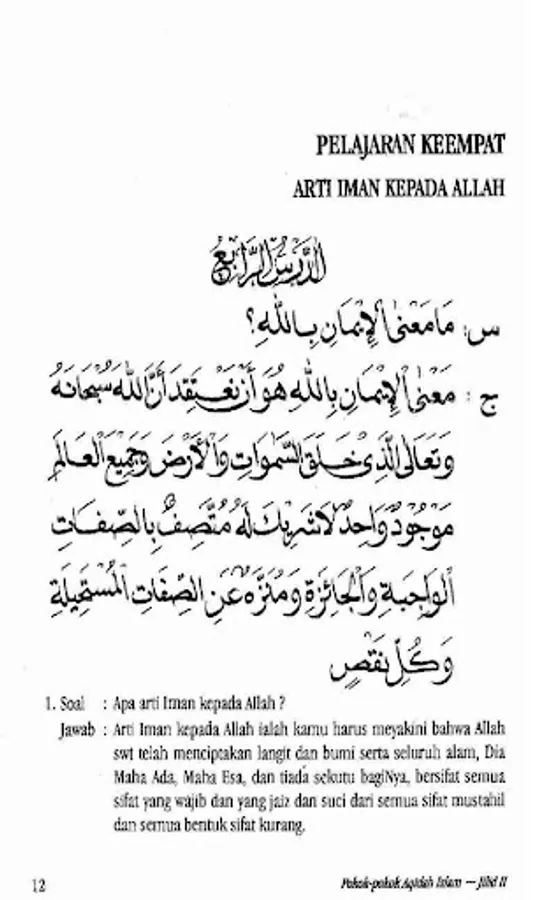 PELAJARAN KEEMPAT
ARTI IMAN KEPADA ALLAH
الدَّرْسُ الرَّابِعُ
س : مَا مَعْنَى الْإِيْمَانِ بِاللّٰهِ؟
ج : مَعْنَى الْإِيْمَانِ بِاللّٰهِ هُوَ أَنْ نَعْتَقِدَ أَنَّ اللّٰهَ سُبْحَانَهُ
وَتَعَالَى الَّذِيْ خَلَقَ السَّمٰوَاتِ وَالْأَرْضَ وَجَمِيْعَ الْعَالَمِ
مَوْجُوْدٌ وَاحِدٌ لَاشَرِيْكَ لَهُ مُتَّصِفٌ بِالصِّفَاتِ
الْوَاجِبَةِ وَالْجَائِزَةِ وَمُنَزَّهٌ عَنِ الصِّفَاتِ الْمُسْتَحِيْلَةِ
وَكُلِّ نَقْصٍ
1. Soal : Apa arti Iman kepada Allah ?
Jawab : Arti Iman kepada Allah ialah kamu harus meyakini bahwa Allah
swt telah menciptakan langit dan bumi serta seluruh alam, Dia
Maha Ada, Maha Esa, dan tiada sekutu bagiNya, bersifat semua
sifat yang wajib dan yang jaiz dan suci dari semua sifat mustahil
dan semua bentuk sifat kurang.
12
Pokok-pokok Aqidah Islam — Jilid II